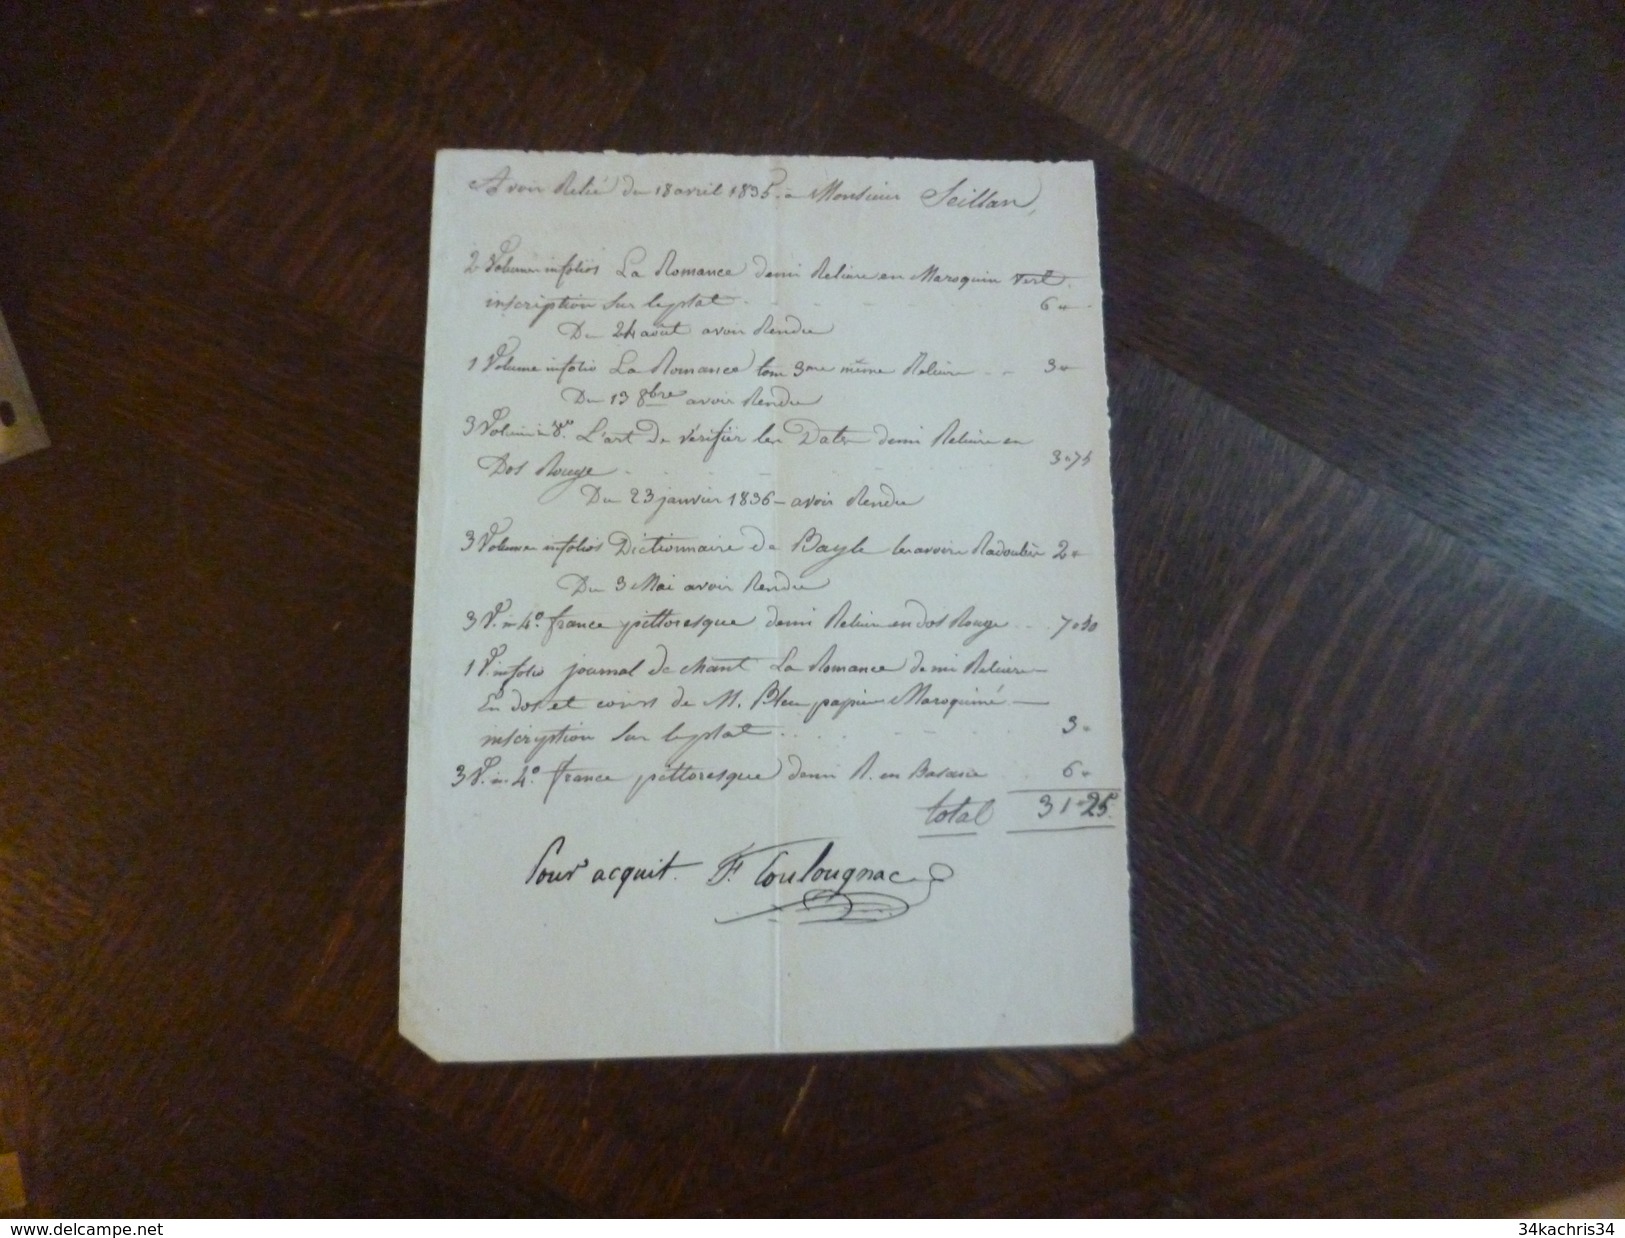 Avoir Relié du 18 avril 1835. à Monsieur Seillan,
2 Volumes infolios La Romance demi Reliure en Maroquin vert.
inscription sur le plat 6 "
Du 24 août avoir Rendu
1 Volume infolio La Romance tom 3me même Reliure 3 "
Du 13 8bre avoir Rendu
3 Volumes in 8°. L'art de vérifier les Dates demi Reliure en
Dos Rouge 3 " 75
Du 23 janvier 1836 – avoir Rendu
3 Volumes infolios Dictionnaire de Bayle les avoir Radoubés 2 "
Du 3 Mai avoir Rendu
3 V. in 4° france pittoresque demi Reliure en dos Rouge 7 " 50
1 V. infolio journal de chant La Romance demi Reliure
En dos et coins de M. Bleu papier Maroquiné
inscription sur le plat 3 "
3 V. in 4° france pittoresque demi R. en Basane 6 "
total 31 " 25
Pour acquit. F. Toulougnac
www.delcampe.net
34kachris34